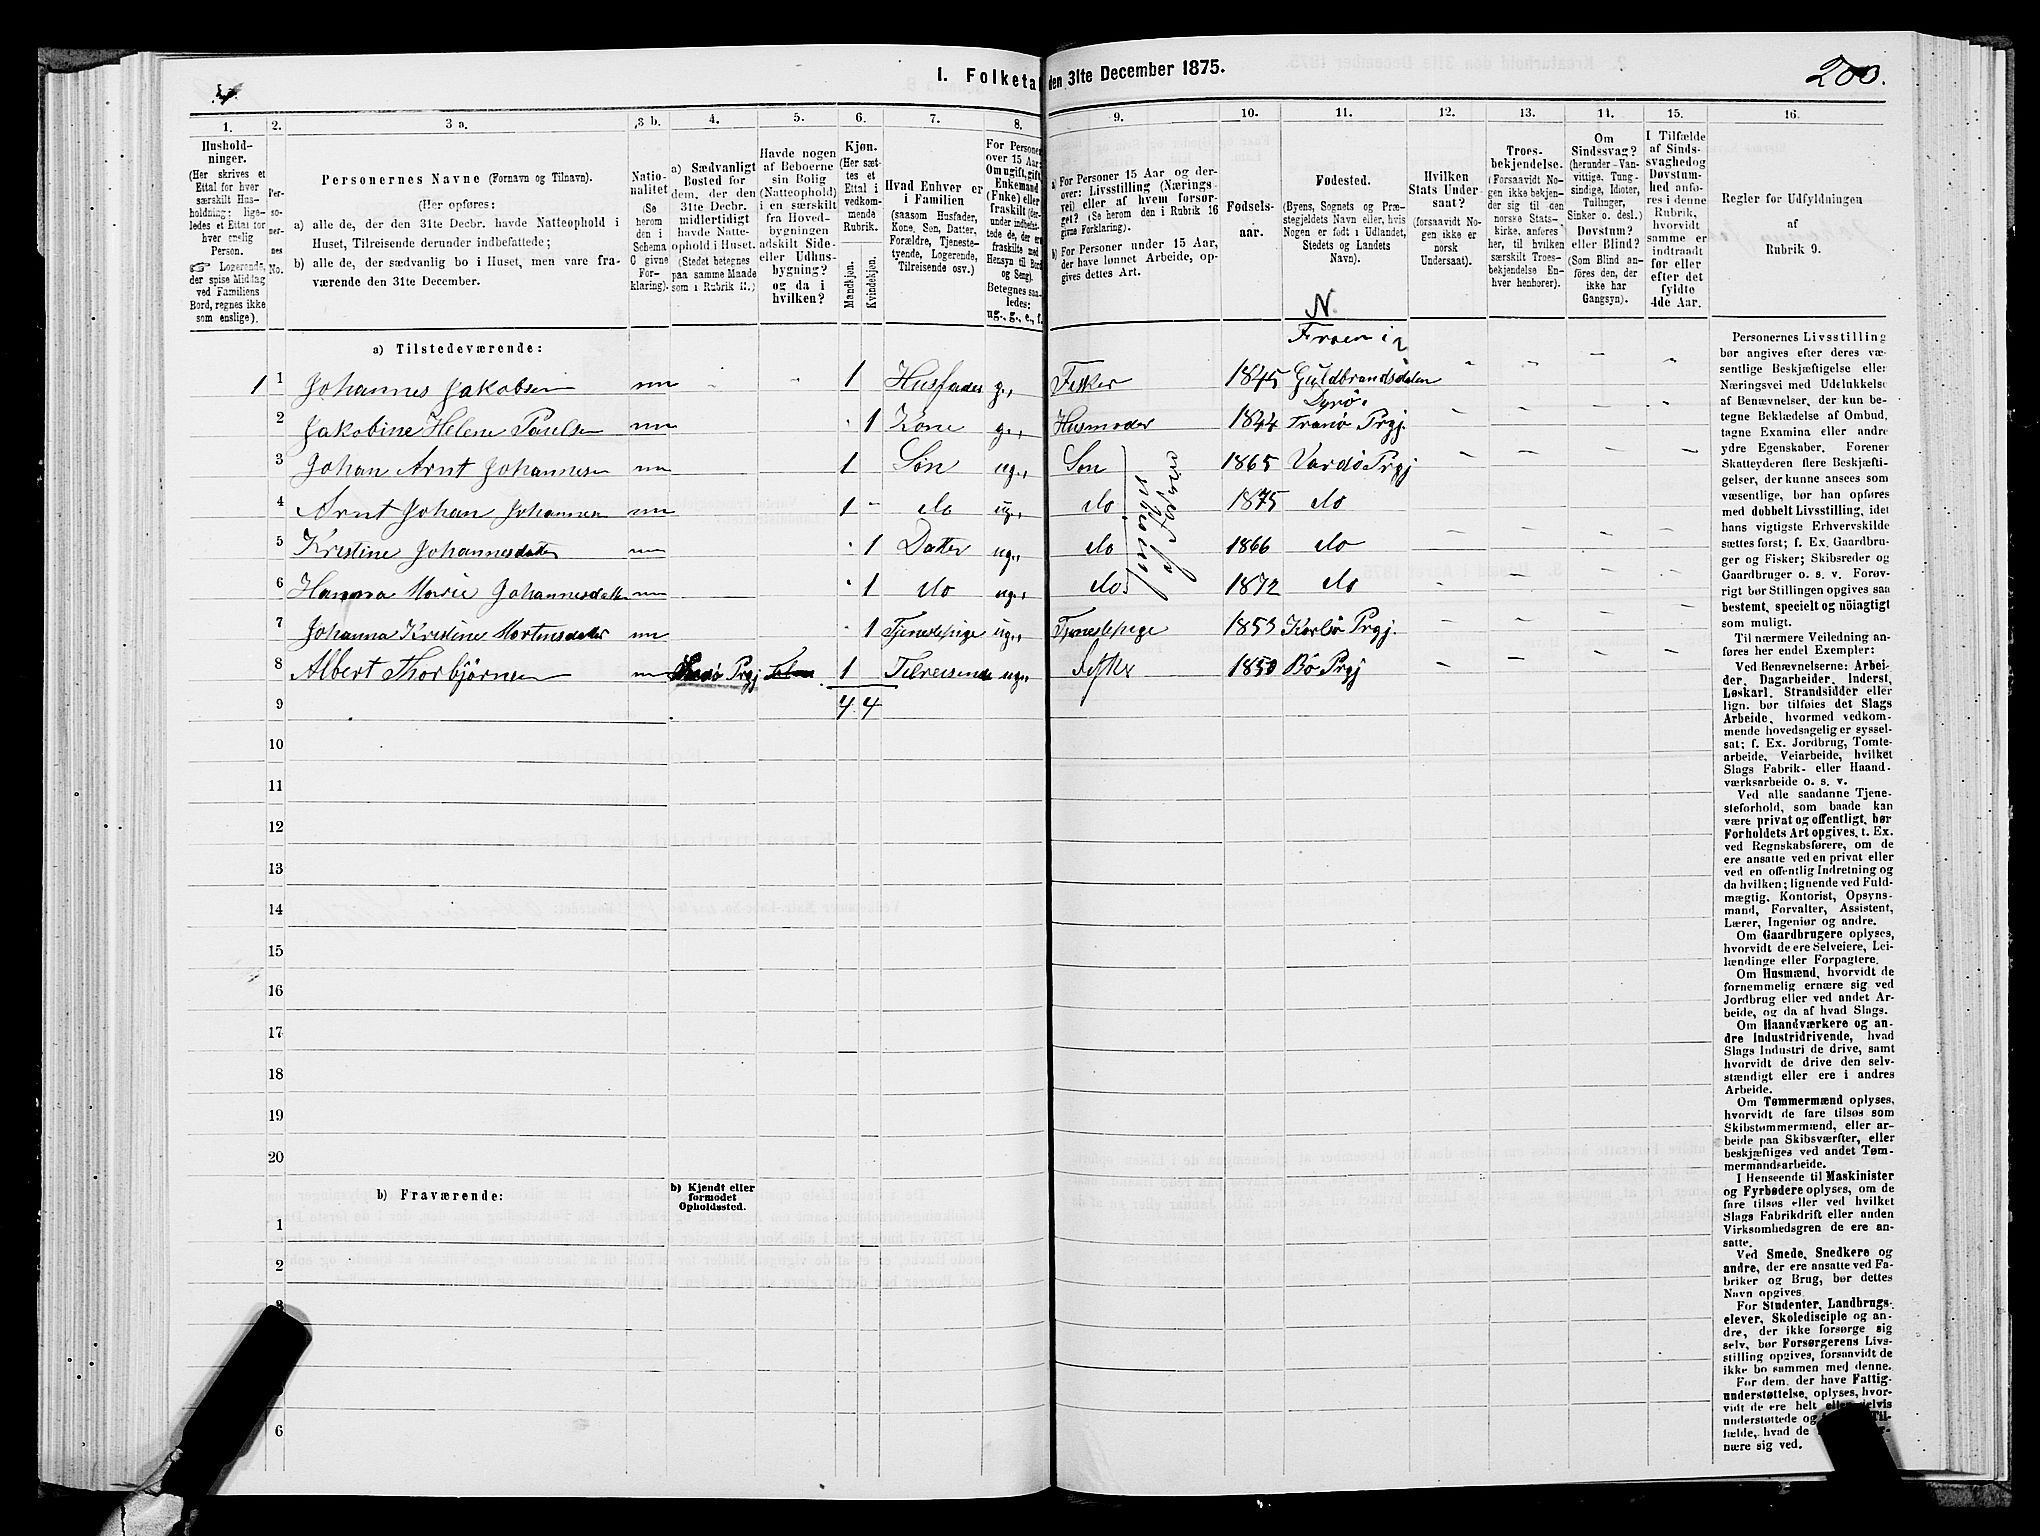 I. Folketal den 31te December 1875.
200.
1. 2. 3 a. 3 b. 4. 5. 6. 7. 8. 9. 10. 11. 12. 13. 14. 15. 16.
Hushold-
ninger.
(Her skrives et
Ettal for hver
særskilt Hus-
holdning; lige-
ledes et Ettal for
hver enslig
Person.
☞ Logerende,
der spise Middag
ved Familiens
Bord, regnes ikke
som enslige).
Per-
so-
ner-
nes
No.
Personernes Navne (Fornavn og Tilnavn).
(Her opføres:
a) alle de, der den 31te Decbr. havde Natteophold i
Huset, Tilreisende derunder indbefattede;
b) alle de, der sædvanlig bo i Huset, men vare fra-
værende den 31te December.
Natio-
nalitet
(Se
herom
den i
Schema
C givne
For-
klaring).
a) Sædvanligt
Bosted for
dem, der den
31te Decbr.
midlertidigt
havde Natte-
ophold i Huset.
(Stedet betegnes
paa samme Maade
som i Rubrik 11.)
Havde nogen
af Beboerne
sin Bolig
(Natteophold)
i en særskilt
fra Hoved-
bygningen
adskilt Side-
eller Udhus-
bygning?
og da i
hvilken?
Kjøn.
(Her sæt-
tes et
Ettal i
vedkom-
mende
Rubrik.
Mandkjøn.
Kvindekjøn.
Hvad Enhver er
i Familien
(saasom Husfader,
Kone, Søn, Datter,
Forældre, Tjeneste-
tyende, Logerende,
Tilreisende osv.)
For Personer
over 15 Aar:
Om ugift, gift,
Enkemand
(Enke) eller
fraskilt
og Seng).
Betegnes saa-
ledes:
ug., g., e., f.
a) For Personer 15 Aar og der-
over: Livsstilling (Nærings-
vei) eller af hvem forsør-
get? (Se herom den i Rubrik 16
givne Forklaring).
b) For Personer under 15 Aar,
der have lønnet Arbeide, op-
gives dettes Art.
Fødsels-
aar.
Fødested.
(Byens, Sognets og Præ-
stegjeldets Navn eller, hvis
Nogen er født i Udlandet,
Stedets og Landets
Navn).
Hvilken
Stats Under-
saat?
(forsaavidt No-
gen ikke er
norsk
Undersaat).
Troes-
bekjendelse.
(Forsaavidt No-
gen ikke bekjen-
der sig til den
norske Stats-
kirke, anføres
her, til hvilken
særskilt Troes-
bekjendelse En-
hver henhører).
Om
Sindssvag?
(herunder Van-
vittige, Tung-
sindige, Idioter,
Tullinger,
Sinker o. desl.)
Døvstum?
eller Blind?
(Som Blind an-
føres den, der
ikke har
Gangsyn).
I Tilfælde
af Sinds-
svaghed og
Døvstum-
hed anfø-
res i denne
Rubrik,
hvorvidt
samme er
indtraadt
før eller
efter det
fyldte
4de Aar.
Regler for Udfyldningen
af
Rubrik 9.
a) Tilstedeværende:
N.
Froen i
1 1 Johannes Jakobsen nn 1 Husfader g., Fisker 1845 Guldbrandsdalen
Dyrø.
2 Jakobine Helene Paulsen nn 1 Kone g., Husmoder 1844 Tranø Prgj.
3 Johan Arnt Johannesen nn 1 Søn ug., Søn 1865 Vardø Prgj
4 Arnt Johan Johannesen nn 1 do ug., do 1875 do
5 Kristine Johannesdatter nn 1 Datter ug., do 1866 do
6 Hanna Marie Johannesdatter nn 1 do ug., do 1872 do
7 Johanna Kristine Mortensdatter nn 1 Tjenestepige ug., Tjenestepige 1853 Karlsø Prgj.
8 Albert Thorbjørnsen nn Prgj 1 Tilreisende ug., Fisker 1850 Bø Prgj
9 4 4
10
11
12
13
14
15
16
17
18
19
20
b) Fraværende:
b) Kjendt eller
formodet
Opholdssted.
1
2
3
6
Personernes Livsstilling
bør angives efter deres væ-
sentlige Beskjæftigelse eller
Næringsvei med Udelukkelse
af Benævnelser, der kun be-
tegne Beklædelse af Ombud,
tagne Examina eller andre
ydre Egenskaber. Forener
Skatteyderen flere Beskjæfti-
gelser, der kunne ansees som
væsentlige, bør han opføres
med dobbelt Livsstilling, idet
hans vigtigste Erhvervskilde
sættes først; f. Ex. Gaardbru-
ger og Fisker; Skibsreder og
Gaardbruger o. s. v. Forøv-
rigt bør Stillingen opgives saa
bestemt, specielt og nöiagtigt
som muligt.
Til nærmere Veiledning an-
føres her endel Exempler:
Ved Benævnelserne: Arbei-
der, Dagarbeider, Inderst,
Løskarl, Strandsidder eller
lign. bør tilføies det Slags
Arbeide, hvormed vedkom-
mende hovedsagelig er syssel-
sat; f. Ex. Jordbrug, Tomte-
arbeide, Veiarbeide, hvilket
Slags Fabrik- eller Haand-
værksarbeide o. s. v.
Ved alle saadanne Tjene-
steforhold, som baade kan
være privat og offentligt, bør
Forholdets Art opgives, t. Ex.
ved Regnskabsførere, om de
ere ansatte ved en privat eller
ved en offentlig Indretning og
da hvilken; lignende ved Fuld-
mægtig, Kontorist, Opsyns-
mand, Forvalter, Assistent,
Lærer, Ingeniør og andre.
Om Gaardbrugere oplyses,
hvorvidt de ere Selveiere, Lei-
lændinge eller Forpagtere.
Om Husmænd, hvorvidt de
fornemmelig ernære sig ved
Jordbrug eller ved andet Ar-
beide, og da af hvad Slags.
Om Haandværkere og an-
dre Industridrivende, hvad
Slags Industri de drive, samt
hvorvidt de drive den selv-
stændigt eller ere i andres
Arbeide.
Om Tømmermænd oplyses,
hvorvidt de fare tilsøs som
Skibstømmermænd, eller ar-
beide paa Skibsværfter, eller
beskjæftiges ved andet Tøm-
mermandsarbeide.
I Henseende til Maskinister
og Fyrbødere oplyses, om de
fare tilsøs eller ved hvilket
Slags Fabrikdrift eller anden
Virksomhedsgren de ere an-
satte.
Ved Smede, Snedkere og
andre, der ere ansatte ved Fa-
briker og Brug, bør dettes
Navn opgives.
For Studenter, Landbrugs-
elever, Skoledisciple og an-
dre, der ikke forsørge sig
selv, bør Forsørgerens Livs-
stilling opgives, forsaavidt de
ikke bo sammen med denne.
For dem, der have Fattig-
understøttelse, oplyses, hvor-
vidt de ere helt eller delvis
understøttede og
fælde, hvad de
nære sig ved.